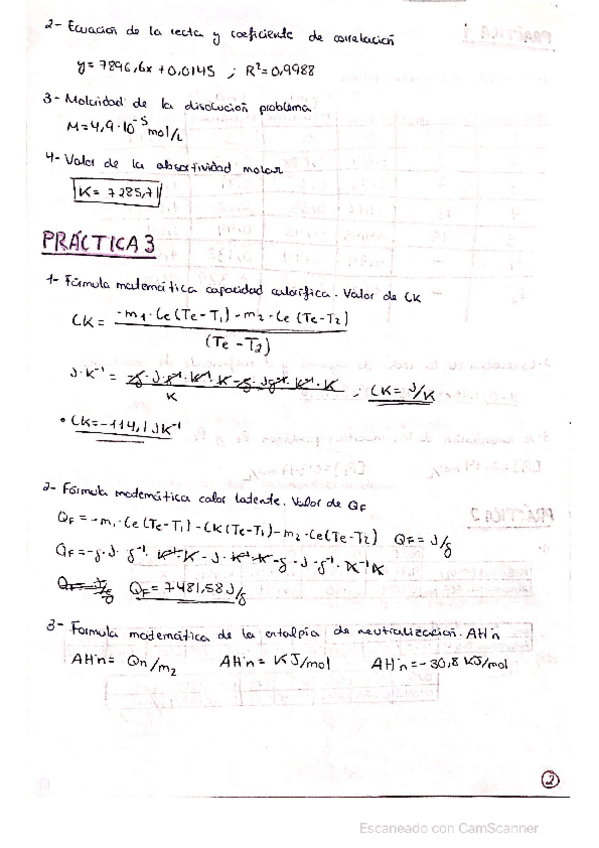 2- Ecuación de la recta y coeficiente de correlación
y=7896,6x+0,0145 ; R²=0,9988
3- Molaridad de la disolución problema
M=4,9·10⁻⁵ mol/L
4- Valor de la absortividad molar
K= 7285,71
PRÁCTICA 3
1- Fórmula matemática capacidad calorífica. Valor de CK
CK= -m₁·Ce(Te-T₁)-m₂·Ce(Te-T₂)
(Te-T₂)
J·K⁻¹ = -g·J·g⁻¹·K⁻¹·K-g·Jg⁻¹·K⁻¹·K ; CK=J/K
K
• CK=-114,1 JK⁻¹
2- Fórmula matemática calor latente. Valor de QF
QF=-m₁·Ce(Te-T₁)-CK(Te-T₁)-m₂·Ce(Te-T₂) QF=J/g
QF=-g·J·g⁻¹·K⁻¹·K-J·K⁻¹·K-g·J·g⁻¹·K⁻¹K
QF=7481,58J/g
3- Formula matemática de la entalpía de neutralización. AHn
AHn= Qn/m₂ AHn= KJ/mol AHn=-30,8 KJ/mol
2
Escaneado con CamScanner